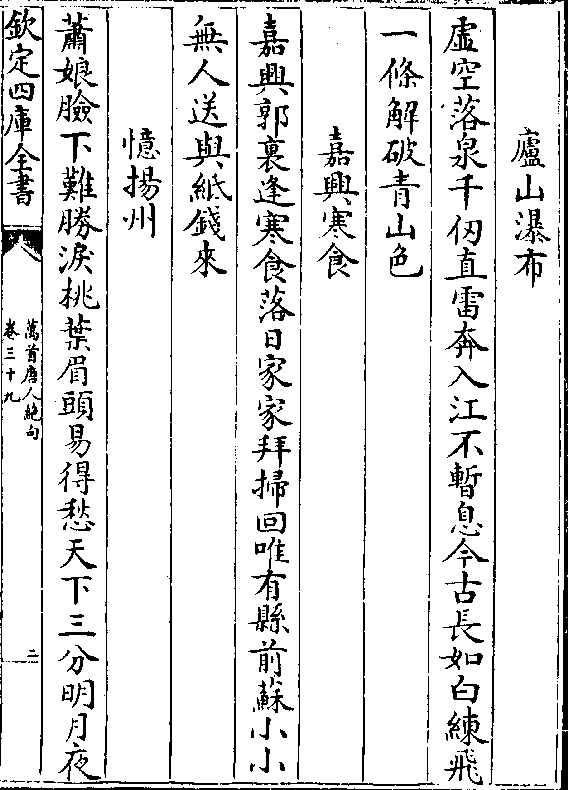 廬山瀑布
虛空落泉千仞直雷奔入江不暫息今古長如白練飛
一條解破青山色
嘉興寒食
嘉興郭裏逢寒食落日家家拜掃回唯有縣前蘇小小
無人送與紙錢來
憶揚州
蕭娘臉下難勝淚桃葉眉頭易得愁天下三分明月夜
欽定四庫全書
萬首唐人絶句
卷三十九
二